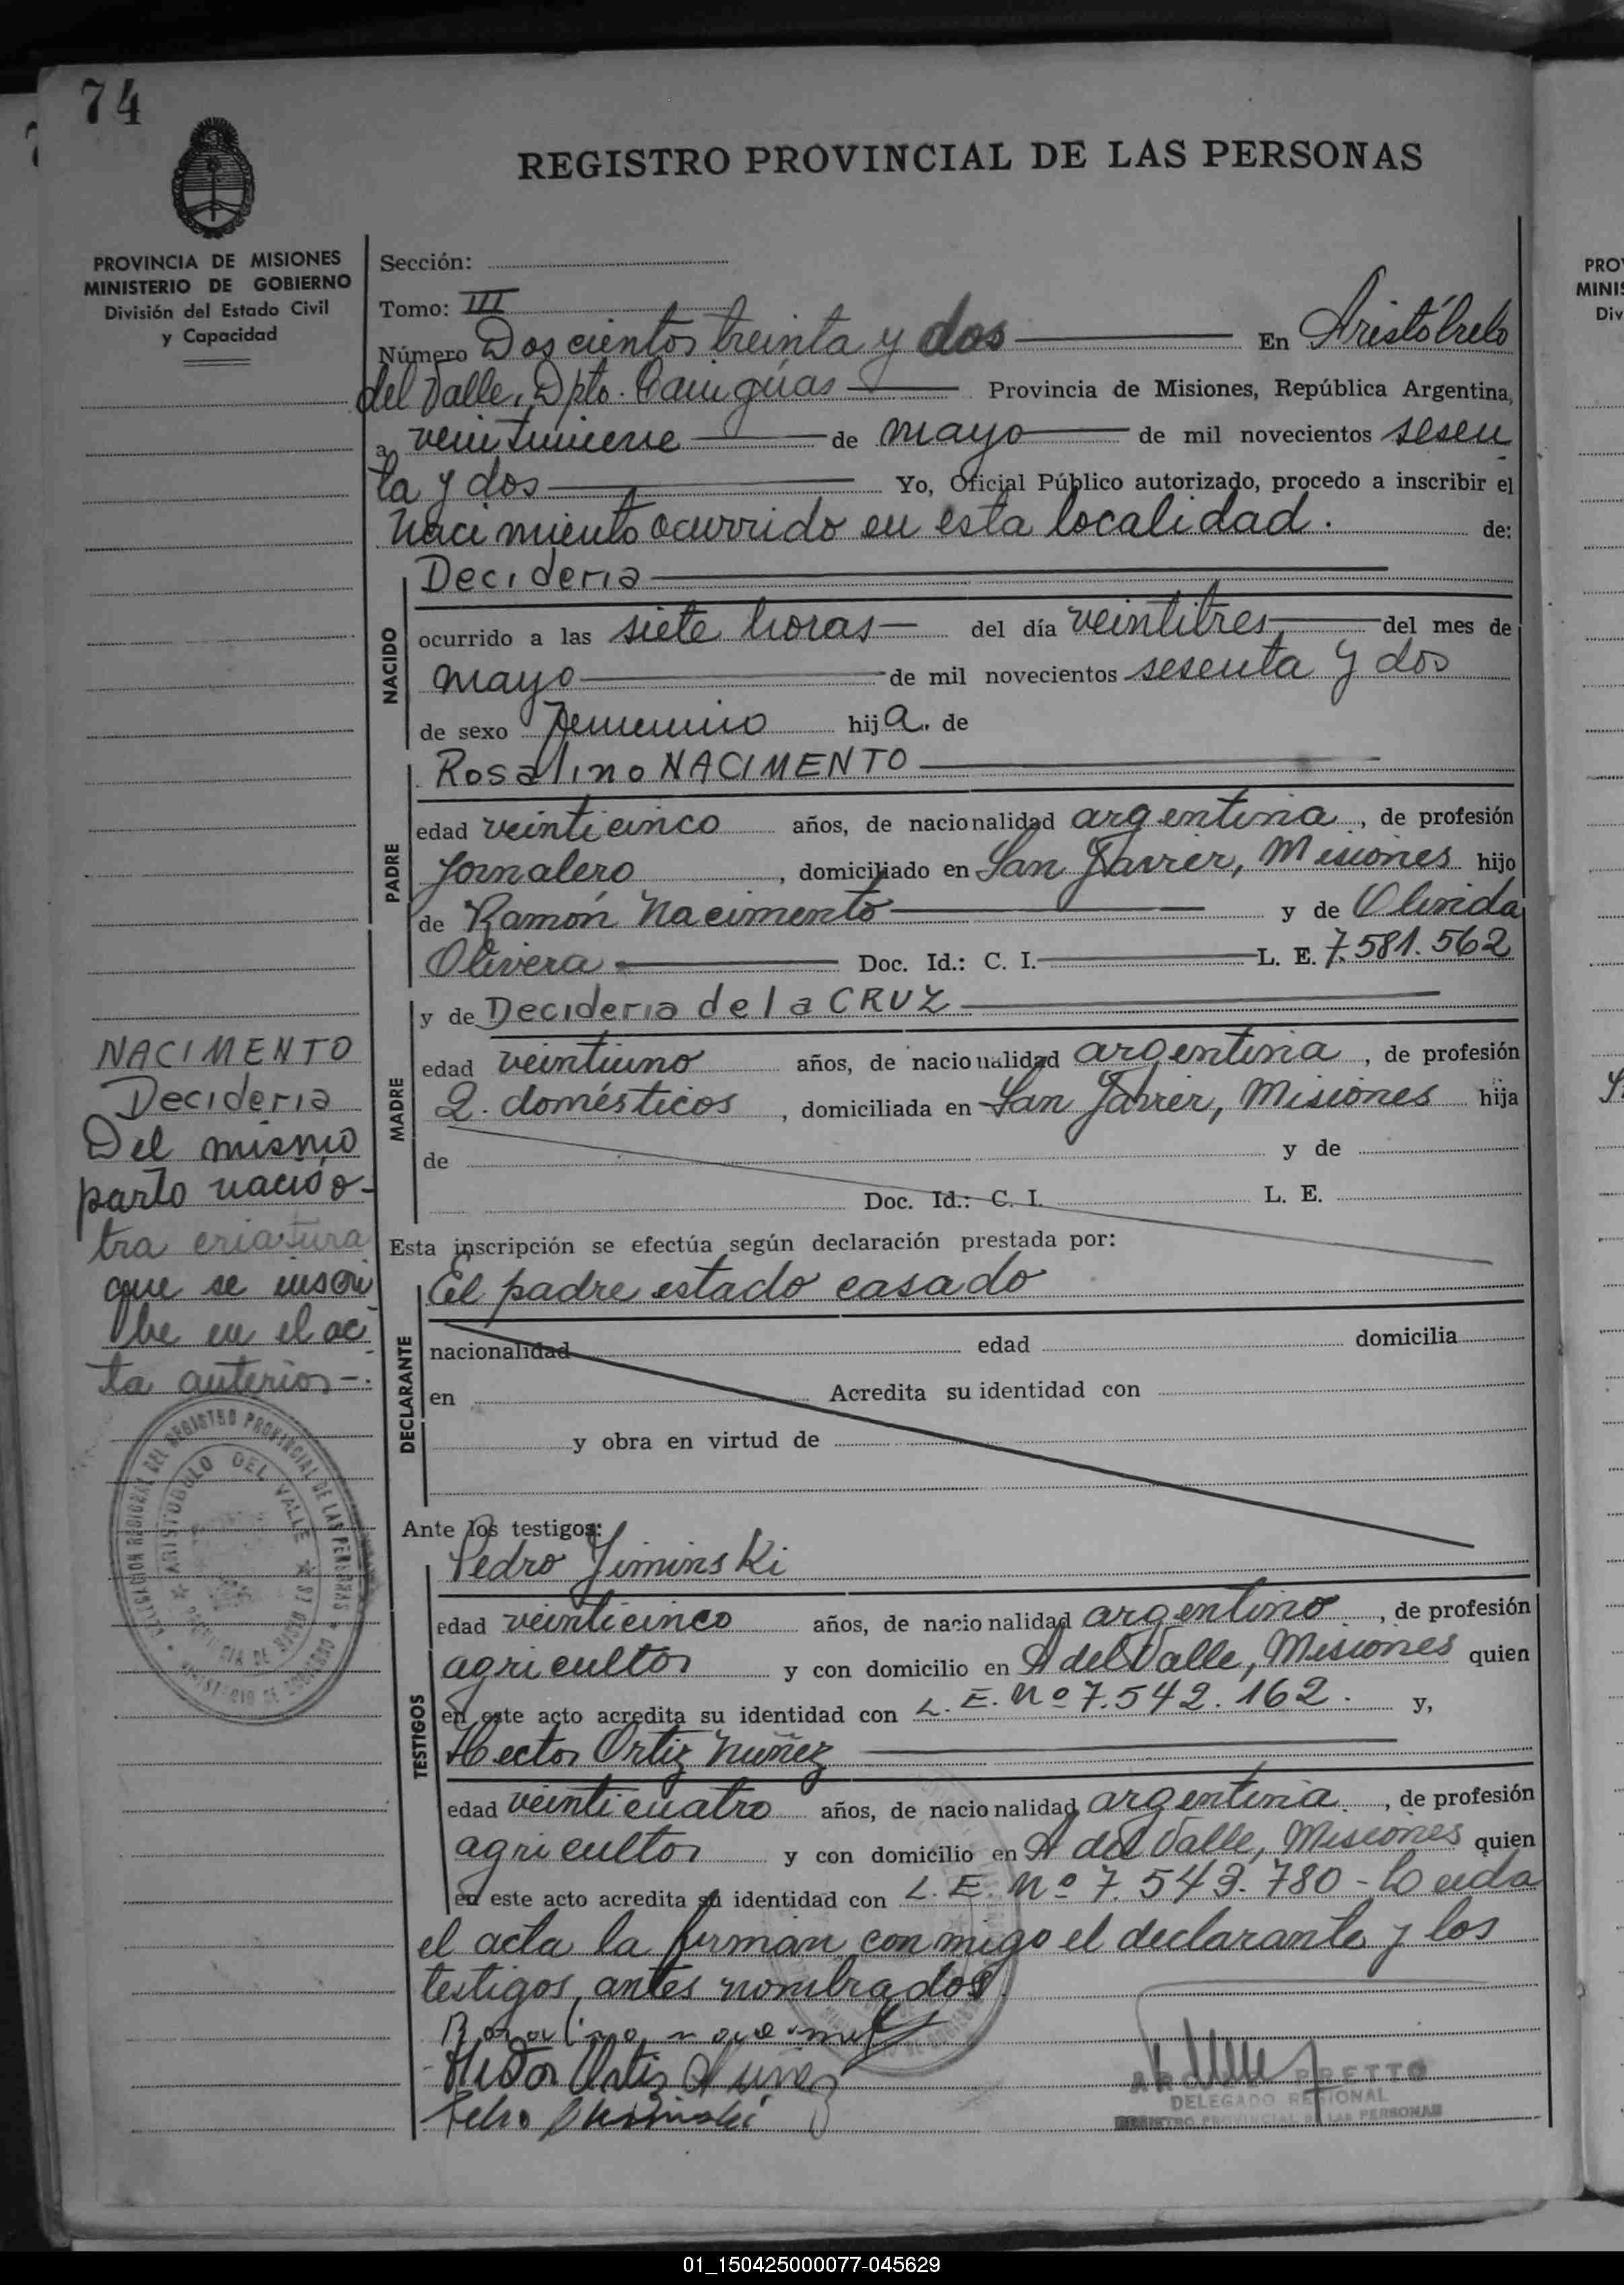 74
REGISTRO PROVINCIAL DE LAS PERSONAS
PROVINCIA DE MISIONES
MINISTERIO DE GOBIERNO
División del Estado Civil
y Capacidad
Sección:
Tomo: III
Número Doscientos treinta y dos En Aristóbulo
del Valle, Dpto. Cainguás Provincia de Misiones, República Argentina,
a veintinueve de mayo de mil novecientos sesen
ta y dos Yo, Oficial Público autorizado, procedo a inscribir el
nacimiento ocurrido en esta localidad. de:
NACIDO
Decideria
ocurrido a las siete horas del día veintitres del mes de
mayo de mil novecientos sesenta y dos
de sexo Femenino hija. de
PADRE
Rosalino NACIMENTO
edad veinticinco años, de nacionalidad argentina, de profesión
Jornalero, domiciliado en San Javier, Misiones hijo
de Ramón Nacimento y de Olinda
Olivera Doc. Id.: C. I. L. E. 7.581.562
MADRE
y de Decideria de la CRUZ
edad veintiuno años, de nacionalidad argentina, de profesión
Q. domésticos, domiciliada en San Javier, Misiones hija
de y de
Doc. Id.: C. I. L. E.
NACIMENTO
Decideria
Del mismo
parto nació o-
tra criatura
que se inscri
be en el ac
ta anterior-.
Esta inscripción se efectúa según declaración prestada por:
DECLARANTE
El padre estado casado
nacionalidad edad domicilia
en Acredita su identidad con
y obra en virtud de
DELEGACION REGIONAL DEL REGISTRO PROVINCIAL DE LAS PERSONAS
ARISTOBULO DEL VALLE
PROVINCIA DE MISIONES
MINISTERIO DE GOBIERNO
Ante los testigos:
TESTIGOS
Pedro Jiminski
edad veinticinco años, de nacionalidad argentino, de profesión
agricultor y con domicilio en A del Valle, Misiones quien
en este acto acredita su identidad con L. E. Nº 7.542.162. y,
Hector Ortiz Nuñez
edad veinticuatro años, de nacionalidad argentina, de profesión
agricultor y con domicilio en A del Valle, Misiones quien
en este acto acredita su identidad con L. E. Nº 7.543.780 - Leida
el acta la firman conmigo el declarante y los
testigos antes nombrados.
Hector Ortiz Nuñez
DELEGADO REGIONAL
REGISTRO PROVINCIAL DE LAS PERSONAS
PRO
MINIS
Div
01_150425000077-045629